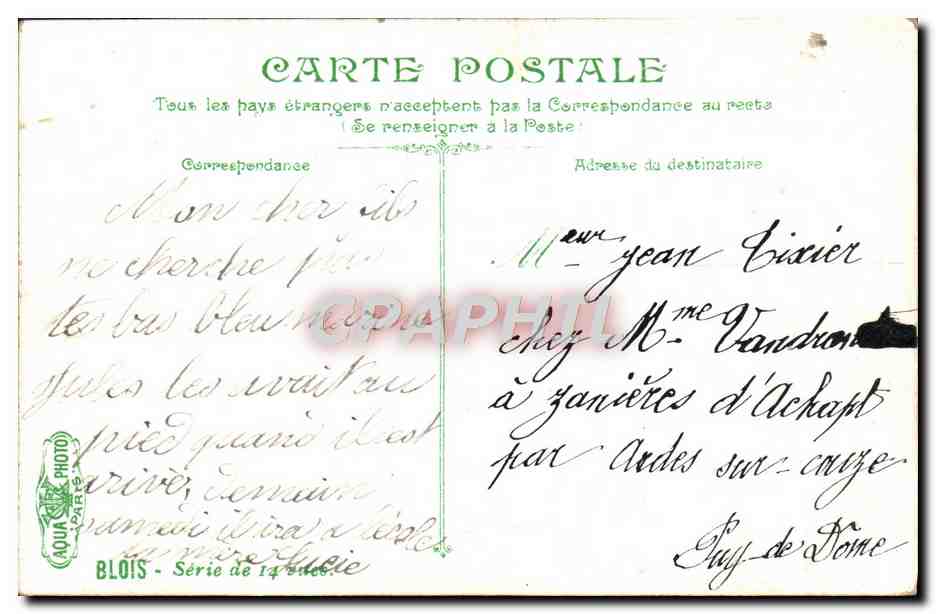 CARTE POSTALE
Tous les pays étrangers n'acceptent pas la Correspondance au recto
(Se renseigner à la Poste)
Correspondance
Adresse du destinataire
Mon cher fils
ne cherche pas
tes bas bleu marine
Jules les avait au
pied quand il est
arivé, demain
samedi il ira a l'école
ta mère Lucie
Meur Jean Tixier
chez Mme
à Zanières d'Achapt
par Ardes sur-couze
Puy-de Dôme
CPAPHIL
AQUA PHOTO
PARIS
BLOIS - Série de 14 vues.